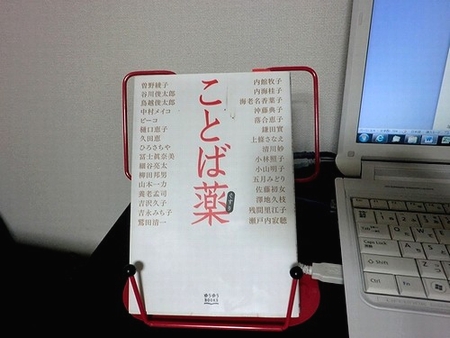 ことば薬
曽野綾子
谷川俊太郎
鳥越俊太郎
中村メイコ
ピーコ
樋口恵子
久田恵
ひろさちや
冨士眞奈美
細谷亮太
柳田邦男
山本一力
養老孟司
吉沢久子
吉永みち子
鷲田清一
内館牧子
内海桂子
海老名香葉子
沖藤典子
落合恵子
鎌田實
上條さなえ
清川妙
小林照子
小山明子
五月みどり
佐藤初女
澤地久枝
残間里江子
瀬戸内寂聴
ゆうゆう
BOOKS